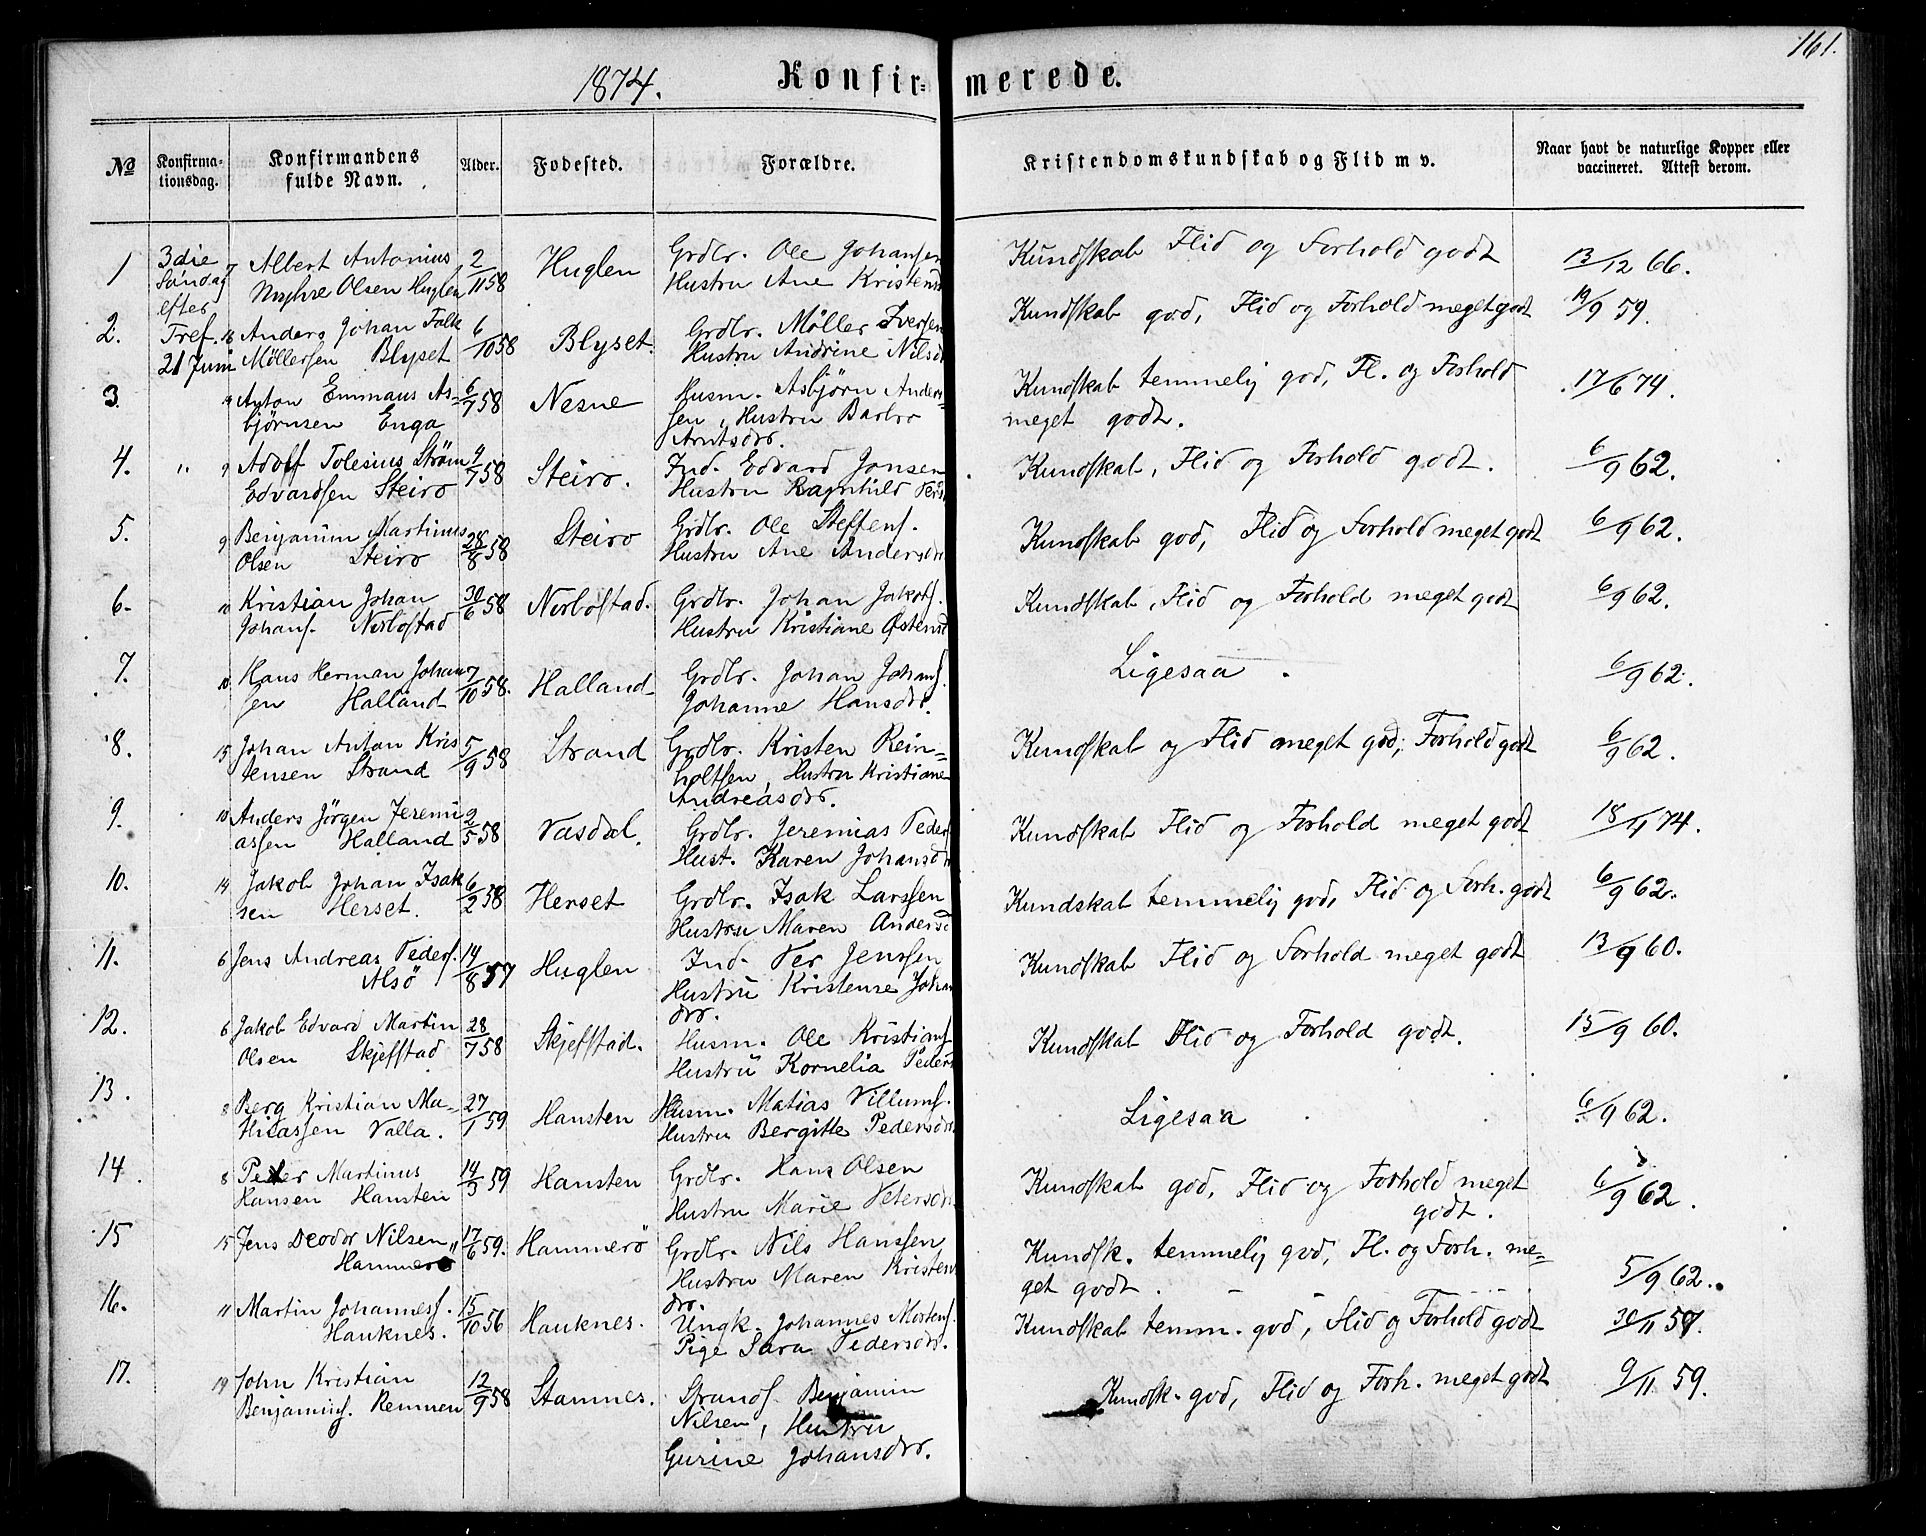 161.
1874. Konfir- merede.
No Konfirma-tionsdag. Konfirmandens fulde Navn. Alder. Fødested. Forældre. Kristendomskundskab og Flid m v. Naar havt de naturlige Kopper eller vaccineret. Attest derom.
1 3die Albert Antonius 2/11 58 Huglen Grdlr. Ole Johansen Kundskab Flid og Forhold godt 13/12 66.
Søndag 7 Olsen Huglen Hustru Ane Kristensd
efter
2. Tref. 16 Anders Johan Falk 6/10 58 Blyset. Grdlr. Møller Iversen Kundskab god, Flid og Forhold meget godt 19/9 59.
21 Juni Møllersen Blyset Hustru Andrine Nilsd
3. 9 Anton Emmaus As- 6/7 58 Nesne Husm. Asbjørn Anders- Kundskab temmelig god, Fl. og Forhold 17/6 74.
bjørnsen Enga sen, Hustru Barbro meget godt.
Arntsdr.
4. " 9 Adolf Tolesius Strøm 4/7 58 Steiro. Ind. Edvard Jonsen Kundskab, Flid og Forhold godt. 6/9 62.
Edvardsen Steiro Hustru Ragnhild Peds
5. 9 Benjamin Martinus 28/8 58 Steiro Grdlr. Ole Steffens. Kundskab god, Flid og Forhold meget godt 6/9 62.
Olsen Steiro Hustru Ane Andersdr
6. 10 Kristian Johan 30/6 58 Nerbostad. Grdlr. Johan Jakobs. Kundskab, Flid og Forhold meget godt 6/9 62.
Johans. Nerbostad Hustru Kristiane Østensd
7. 10 Hans Herman Johan 7/10 58. Halland Grdlr. Johan Johans. Ligesaa. 6/9 62.
sen Halland Johanne Hansdr.
8. 15 Johan Anton Kris 5/9 58 Strand Grdlr. Kristen Rein= Kundskab og Flid meget god; Forhold godt 6/9 62.
tensen Strand holtsen, Hustru Kristiane
Andreasdr.
9. 10 Anders Jørgen Jeremi 2/5 58 Vasdal. Grdlr. Jeremias Peders Kundskab Flid og Forhold meget godt 18/4 74.
assen Halland Hust. Karen Johansdr
10. 14 Jakob Johan Isak 6/2 58 Herset Grdlr. Isak Larssen Kundskab temmelig god, Flid og Forh. godt 6/9 62.
sen Herset. Hustru Maren Andersd
11. 6 Jens Andreas Peders. 14/8 57 Huglen Ind. Per Jenssen Kundskab Flid og Forhold meget godt 13/9 60.
Alsö Hustru Kristense Johan
dr.
12. 6 Jakob Edvard Martin 28/7 58 Skjefstad. Husm. Ole Kristians. Kundskab Flid og Forhold godt. 15/9 60.
Olsen Skjefstad Hustru Kornelia Peders
13. 8 Berg Kristian Ma- 27/1 59 Hansten Husm. Matias Villums. Ligesaa 6/9 62.
thiassen Valla. Hustru Bergitte Pedersdr.
14. 8 Peter Martinus 14/3 59 Hansten Grdlr. Hans Olsen Kundskab god, Flid og Forhold meget 6/9 62.
Hansen Hansten Hustru Marie Petersdr. godt.
15 15 Jens Deodor Nilsen 17/6 59. Hammerö Grdlr. Nils Hanssen Kundsk. temmelig god, Fl. og Forh. me-
Hammerö Hustru Maren Kristen get godt. 5/9 62.
dr.
16. 11 Martin Johanness. 15/10 56 Hauknes. Ungk. Johannes Mortens. Kundskab temm. god, Flid og Forhold godt 30/11 57.
Hauknes. Pige Sara Pedersdr.
17. 19 John Kristian 12/9 58 Stamnes. Strands. Benjamin Kundsk. god, Flid og Forh. meget godt 9/11 59.
Benjamins. Remmen Nilsen, Hustru
Gurine Johansdr.